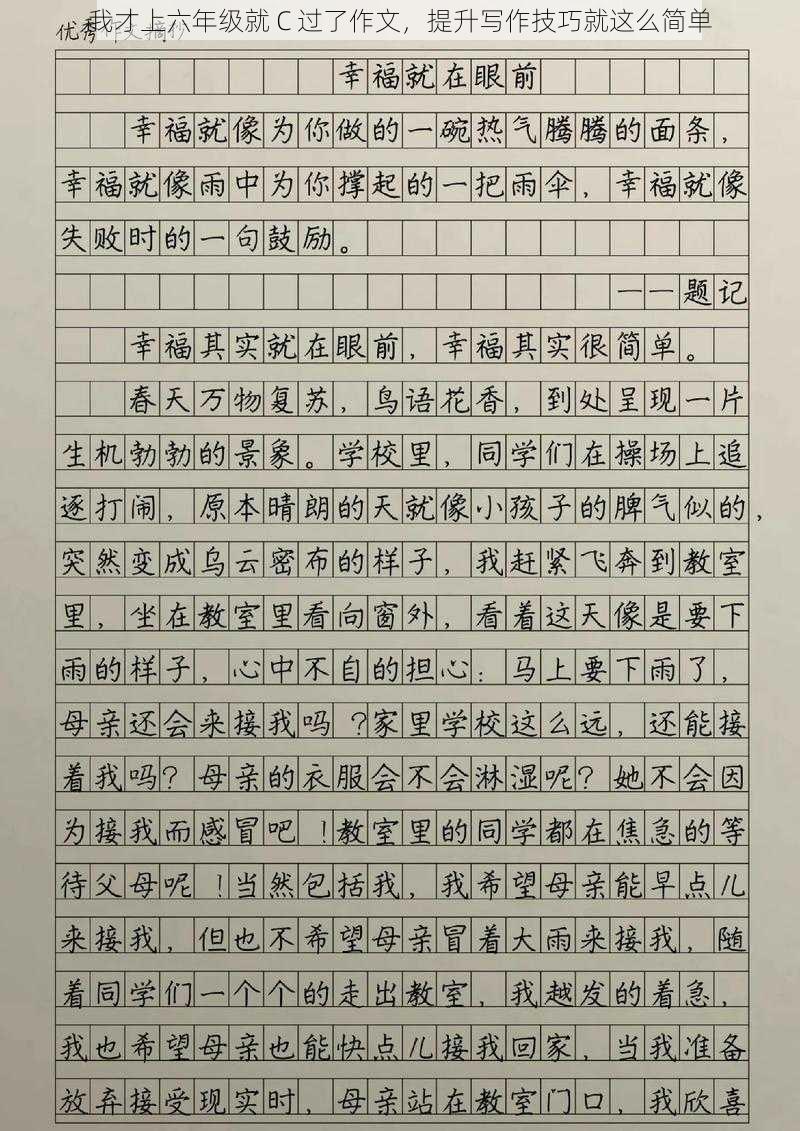 我才上六年级就 C 过了作文，提升写作技巧就这么简单
优秀作文摘抄
幸福就在眼前
幸福就像为你做的一碗热气腾腾的面条，
幸福就像雨中为你撑起的一把雨伞，幸福就像
失败时的一句鼓励。
——题记
幸福其实就在眼前，幸福其实很简单。
春天万物复苏，鸟语花香，到处呈现一片
生机勃勃的景象。学校里，同学们在操场上追
逐打闹，原本晴朗的天就像小孩子的脾气似的，
突然变成乌云密布的样子，我赶紧飞奔到教室
里，坐在教室里看向窗外，看着这天像是要下
雨的样子，心中不自的担心：马上要下雨了，
母亲还会来接我吗？家里学校这么远，还能接
着我吗？母亲的衣服会不会淋湿呢？她不会因
为接我而感冒吧！教室里的同学都在焦急的等
待父母呢！当然包括我，我希望母亲能早点儿
来接我，但也不希望母亲冒着大雨来接我，随
着同学们一个个的走出教室，我越发的着急，
我也希望母亲也能快点儿接我回家，当我准备
放弃接受现实时，母亲站在教室门口，我欣喜